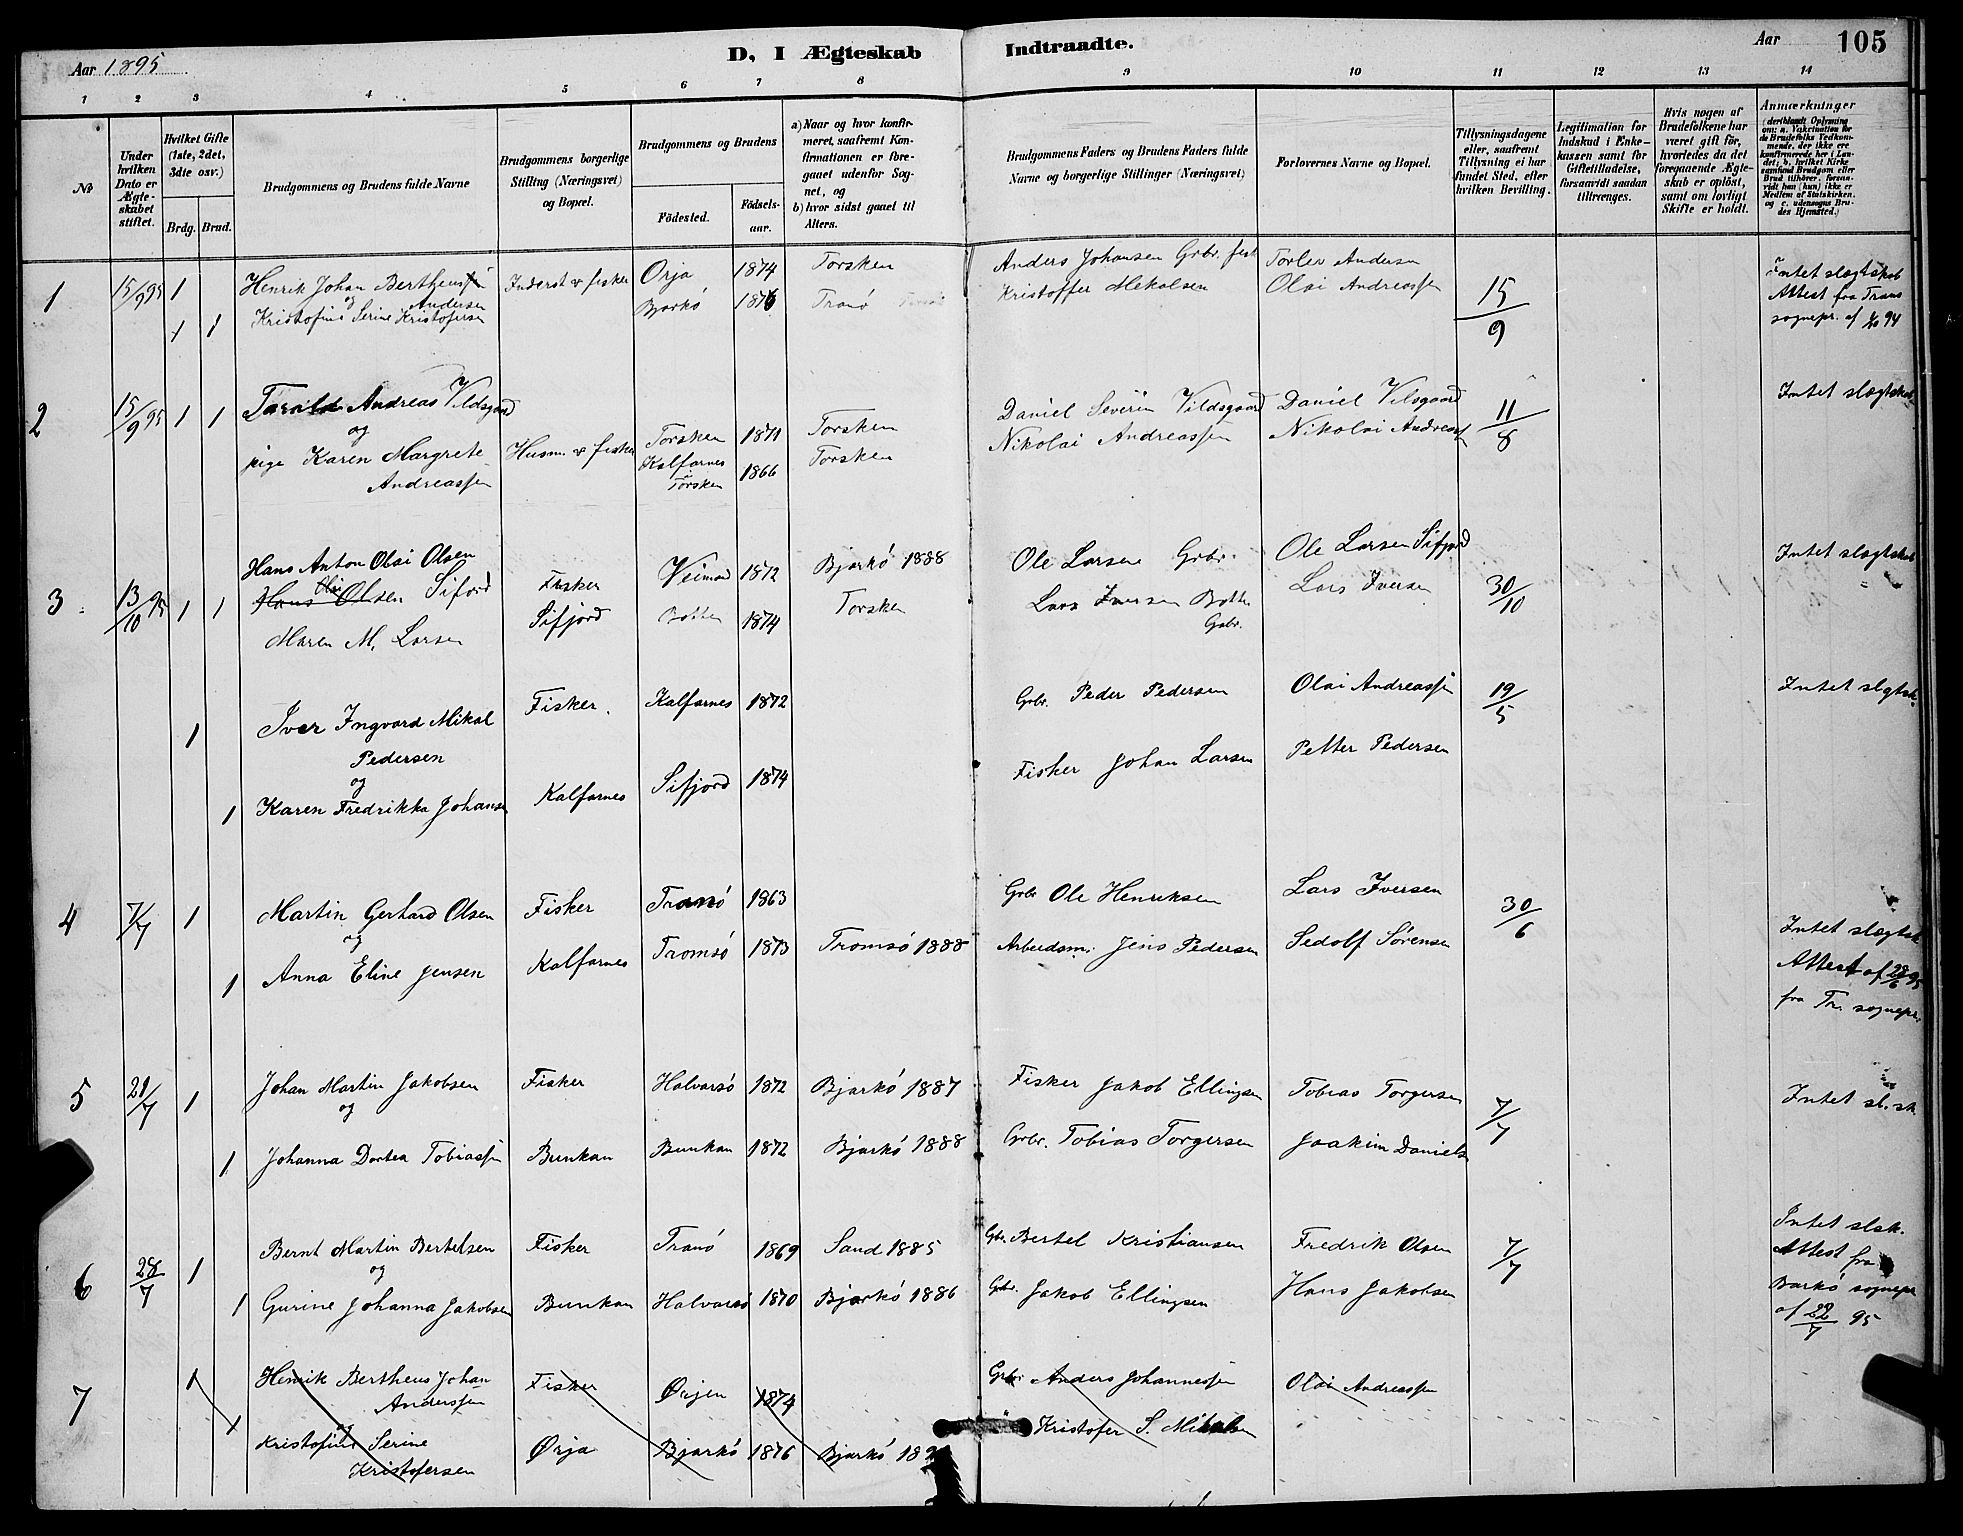 Aar 1895
D, I Ægteskab Indtraadte.
Aar 105
1 2 3 4 5 6 7 8 9 10 11 12 13 14
No
Under hvilken Dato er Ægteskabet stiftet.
Hvilket Gifte (1ste, 2det, 3die osv.)
Brdg. Brud.
Brudgommens og Brudens fulde Navne
Brudgommens borgerlige Stilling (Næringsvei) og Bopæl.
Brudgommens og Brudens
Fødested. Fødselsaar.
a) Naar og hvor konfirmeret, saafremt Konfirmationen er foregaaet udenfor Sognet, og
b) hvor sidst gaaet til Alters.
Brudgommens Faders og Brudens Faders fulde Navne og borgerlige Stillinger (Næringsvei)
Forlovernes Navne og Bopæl.
Tillysningsdagene eller, saafremt Tillysning ei har fundet Sted, efter hvilken Bevilling.
Legitimation for Indskud i Enkekassen samt for Giftetilladelse, forsaavidt saadan tiltrænges.
Hvis nogen af Brudefolkene har været gift før, hvorledes da det foregaaende Ægteskab er opløst, samt om lovligt Skifte er holdt.
Anmærkninger (deriblandt Oplysning om: a. Vakcination for de Brudefolks Vedkommende, der ikke ere konfirmerede her i Landet; b. hvilket Kirkesamfund Brudgom eller Brud tilhører, forsaavidt han (hun) ikke er Medlem af Statskirken, og c. udensogns Brudes Hjemsted.)
1 15/9 95 1 Henrik Johan Bertheus Inderst & fisker Orja 1874 Torsken Anders Johansen Gbr. fisk Torlev Andersen 15/9 Intet slegtskab
og Andersen
1 1 Kristofine Serine Kristofersen Bjarkö 1876 Tranö Kristoffer Mekalsen Olai Andreassen Attest fra Tranö
sognepr. af 94
2 15/9 95 1 1 Andreas Vildsgaard Husm. & fisker Torsken 1871 Torsken Daniel Severin Vildsgaard Daniel Vilsgaard 11/8 Intet slægtskab
og
pige Karen Margrete Kalfarnes 1866 Torsken Nikolai Andreassen Nikolai Andreass
Andreassen Torsken
Hans Anton Olai Olsen
3 13/10 95 1 1 Hans Olai Olsen Sifjord Fisker Veimod 1872 Bjarkö 1888 Ole Larsen Grbr. Ole Larsen Sifjord 30/10 Intet slægtskab
Maren M. Larsen Sifjord Botten 1874 Torsken Lars Iversen Botten Lars Iversen
Grbr.
1 Iver Ingvard Mikal Fisker Kalfarnes 1872 Grbr. Peder Pedersen Olai Andreassen 19/5 Intet slgtsk.
Pedersen
og
1 Karen Fredrikka Johansen Kalfarnes Sifjord 1874 Fisker Johan Larsen Petter Pedersen
4 7/7 1 Martin Gerhard Olsen Fisker Tranö 1863 Grbr Ole Henriksen Lars Iversen 30/6 Intet slægtsk
og
1 Anna Eline Jensen Kalfarnes Tromsö 1873 Tromsö 1888 Arbeidsm. Jens Pedersen Sedolf Sörensen Attest af 28/6 95
fra Tr. sognepr.
5 21/7 1 Johan Martin Jakobsen Fisker Halvarsö 1872 Bjarkö 1887 Fisker Jakob Ellingsen Tobias Torgersen 7/7 Intet sl.sk
og
1 Johanna Dortea Tobiassen Bunkan Bunkan 1872 Bjarkö 1888 Grbr. Tobias Torgersen Joakim Daniels
6 28/7 1 Bernt Martin Bertelsen Fisker Tranö 1869 Sand 1885 Gbr. Bertel Kristiansen Fredrik Olsen 7/7 Intet slsk.
og
1 Gurine Johanna Jakobsen Bunkan Halvarsö 1870 Bjarkö 1886 Grbr. Jakob Ellingsen Hans Jakobsen Attest fra
Barkö sognepr
af 22/7 95
7 1 Henrik Bertheus Johan Fisker Ørjen 1874 Grbr Anders Johannessen Olai Andreassen
Anderssen
og
1 Kristofine Serine Ørja Bjarkö 1876 Bjarkö Kristofer S. Mikalsen
Kristofersen